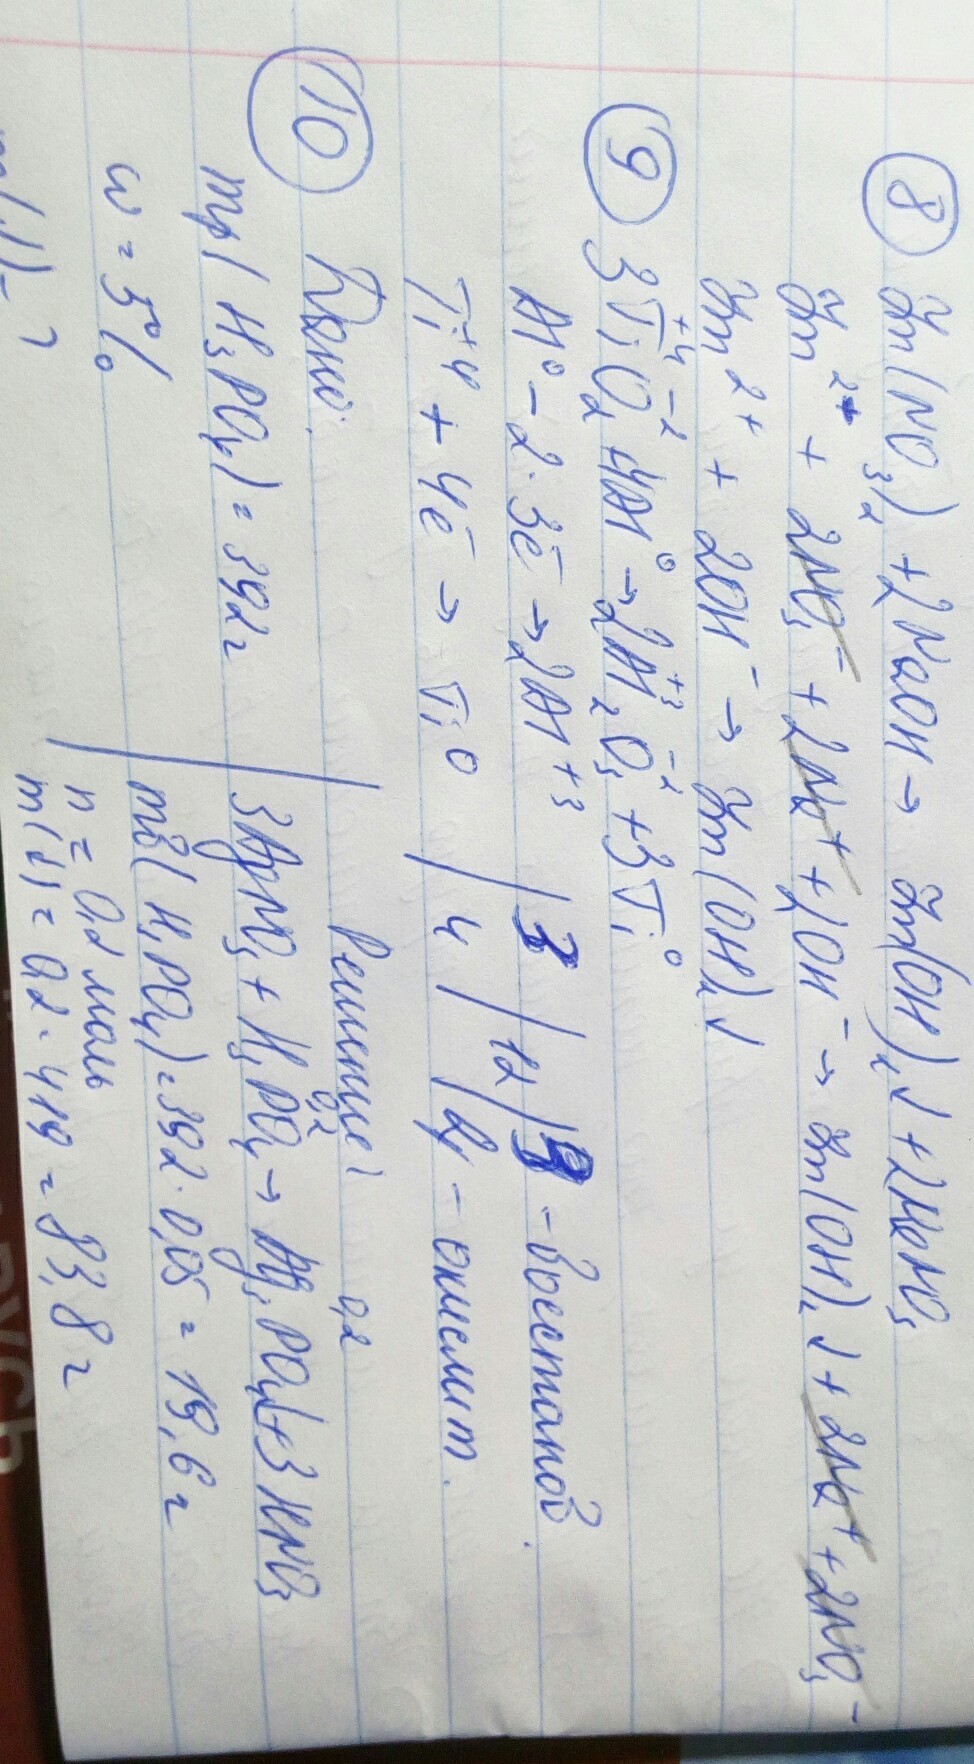 ⑧ Zn(NO₃)₂ + 2NaOH → Zn(OH)₂↓ + 2NaNO₃
Zn²⁺ + 2NO₃⁻ + 2Na⁺ + 2OH⁻ → Zn(OH)₂↓ + 2Na⁺ + 2NO₃⁻
Zn²⁺ + 2OH⁻ → Zn(OH)₂↓
⑨ 3Ti⁺⁴O₂⁻² + 4Al⁰ → 2Al₂⁺³O₃⁻² + 3Ti⁰
Al⁰ - 2·3ē → 2Al⁺³ | 3 | 12 | - восстанов.
Ti⁺⁴ + 4ē → Ti⁰ | 4 | - окислит.
⑩ Дано:
mр(H₃PO₄) = 392г
w = 5%
m(↓) = ?
Решение:
0,2 0,2
3AgNO₃ + H₃PO₄ → Ag₃PO₄↓ + 3HNO₃
mв(H₃PO₄) = 392·0,05 = 19,6г
n = 0,2 моль
m(↓) = 0,2·419 = 83,8г